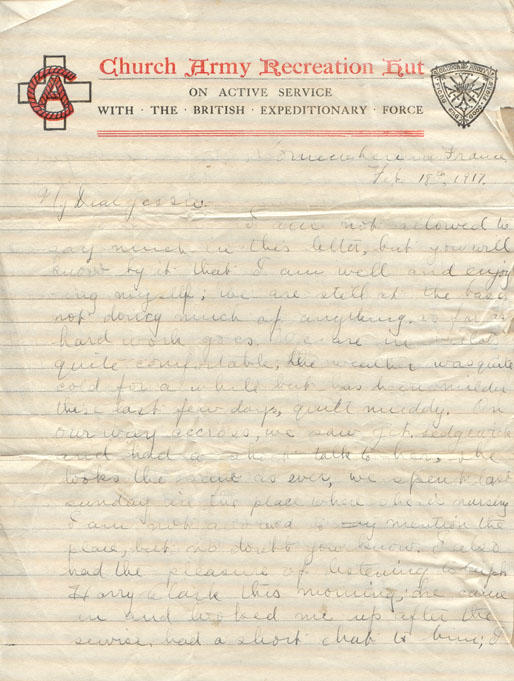 Church Army Recreation Hut
ON ACTIVE SERVICE
WITH · THE · BRITISH · EXPEDITIONARY · FORCE
Somewhere in France
Feb 18th, 1917.
My Dear Jessie.
I am not allowed to
say much in this letter, but you will
know by it that I am well and enjoy
ing myself; we are still at the base
not doing much of anything, so far as
hard work goes. We are in
quite comfortable, the weather was quite
cold for a while but has been milder
these last few days, quite muddy. On
our way accross, we saw Sedgewick
and had a short talk to her, she
looks the same as ever, we spent last
sunday in the place where she is nursing
I am not allowed to mention the
place, but no doubt you know. I also
had the pleasure of listening to
Harry Clark this morning; he came
in and looked me up after the
service, had a short chat to him; I